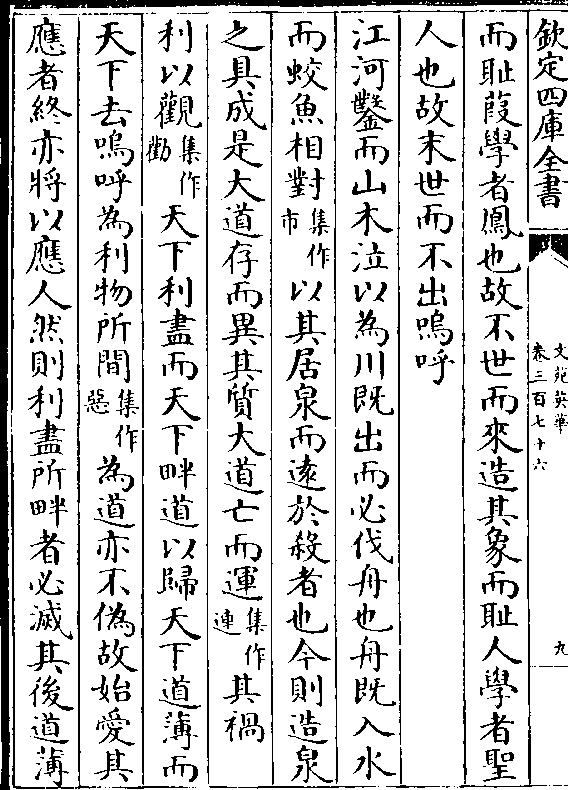 欽定四庫全書
文苑英華
卷三百七十六
九
而恥葭學者鳳也故不世而來造其象而恥人學者聖
人也故末世而不出嗚呼
江河鑿而山木泣以為川既出而必伐舟也舟既入水
而蛟魚相對集作市以其居泉而遠於殺者也今則造泉
之具成是大道存而異其質大道亡而運集作連其禍
利以觀集作勸天下利盡而天下畔道以歸天下道薄而
天下去嗚呼為利物所間集作惡為道亦不偽故始愛其
應者終亦將以應人然則利盡所畔者必滅其後道薄